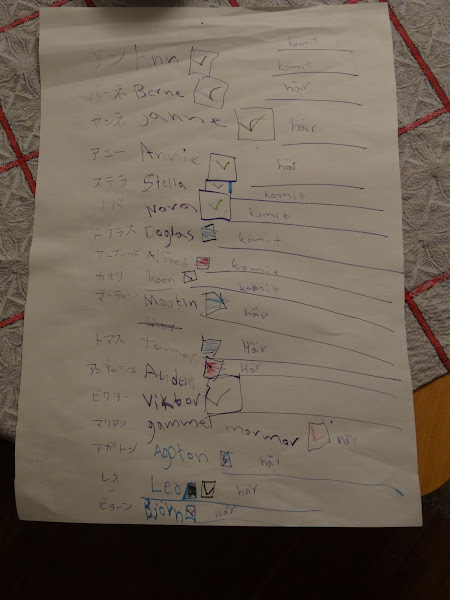 komit
アン Ann komit
バーネ Berne här
ヤンネ janne här
アニー Annie här
ステラ Stella komit
ノバ Nova komit
ドグラス Doglas komit
アルフレッド Alfred komit
カオリ kaori komit
マーティン Martin här
トマス Tommas Här
アンネッシュ Anders Här
ビクター Viktor
マリアン gammel mormor här
アガトン Agaton här
レオ Leo här
ビョーン Björn här